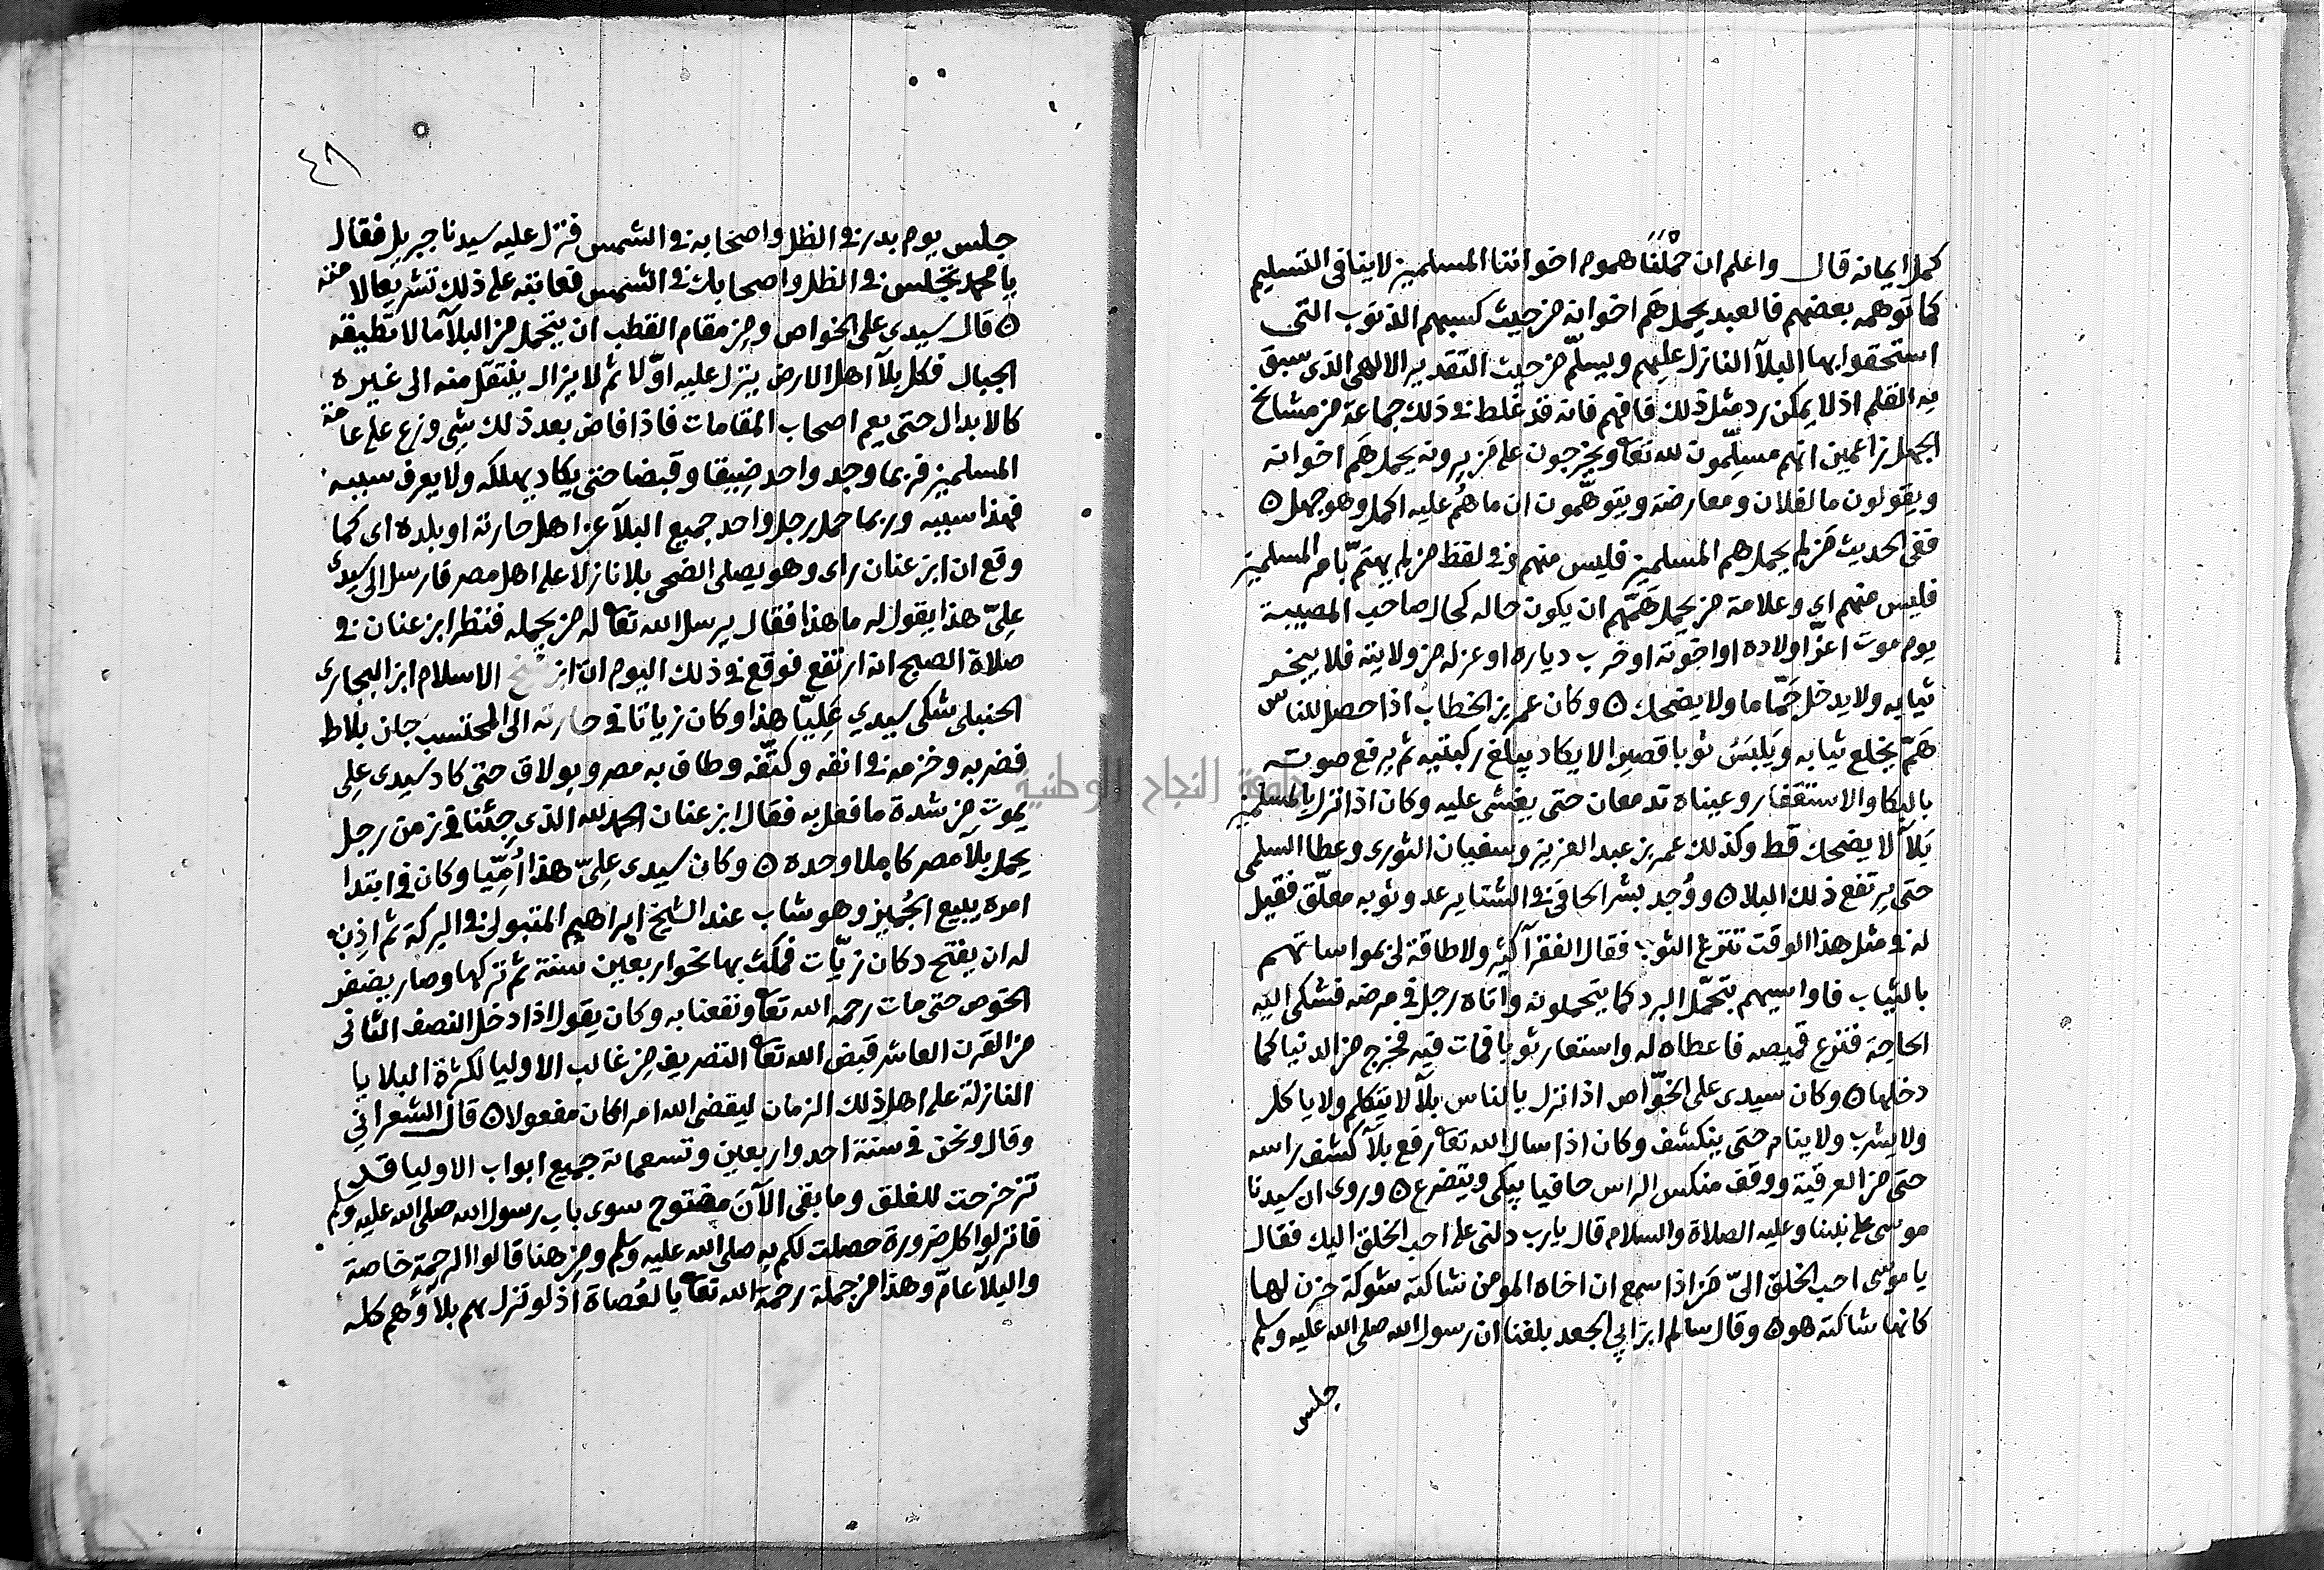 كمل ايمانه قال واعلم ان حَمْلَنَا هموم اخواننا المسلمين لاينافى التسليم
كما توهمه بعضهم فالعبد يحمل هَم اخوانه من حيث كسبهم الذنوب التى
استحقوا بها البلآ النازل عليهم ويسلّم من حيث التقدير الالهى الذى سبق
به القلم اذ لا يمكن رد مثل ذلك فافهم فانه قد غلط فى ذلك جماعة من مشايخ
الجهل زاعمين انهم مسلِّمون لله تعا ويخرجون على من يرونه يحمل هَم اخوانه
ويقولون ما لفلان ومعارضة ويتوهّمون ان ما هُم عليه اكمل وهو جهل ٥
ففى الحديث مَن لم يحمل هم المسلمين فليس منهم وفى لفظ من لم يهتمّ بامر المسلمين
فليس منهم اي وعلامة من يحمل هَمَّهم ان يكون حاله كحال صاحب المصيبة
يوم موت اعزّ اولاده او اخوته او خرب دياره او عزله من ولايته فلا يبخر
ثيابه ولا يدخل حَمّاما ولا يضحك ٥ وكان عمر بن الخطاب اذا حصل للناس
هَمّ يخلع ثيابه ويَلبَسُ ثوبا قصيرا لايكاد يبلغ ركبتيه ثم يرفع صوته
بالبكا والاستغفار وعيناه تدمعان حتى يغشى عليه وكان اذا نزل بالمسلمين
بَلآٌ لا يضحك قط وكذلك عمر بن عبد العزيز وسفيان الثورى وعطا السلمى
حتى يرتفع ذلك البلا ٥ ووُجد بشر الحافى فى الشتا يرعد وثوبه معلّق فقيل
له فى مثل هذا الوقت تنزع الثوب فقال الفقرآ كثير ولا طاقة لى بمواساتهم
بالثياب فاواسيهم بتحمّل البرد كما يتحملونه واتاه رجل فى مرضه فشكى اليه
الحاجة فنزع قميصه فاعطاه له واستعار ثوبا فمات فيه فخرج من الدنيا كما
دخلها ٥ وكان سيدى على الخوّاص اذا نزل بالناس بلآٌ لا يتكلم ولا ياكل
ولا يشرب ولا ينام حتى ينكشف وكان اذا سال الله تعا رفع بلآ كشف راسه
حتى من العرقية ووقف منكس الراس حافيا يبكى ويتضرع ٥ وروى ان سيدنا
موسى على نبينا وعليه الصلاة والسلام قال يارب دلنى على احب الخلق اليك فقال
يا موسى احب الخلق الىّ مَن اذا سمع ان اخاه المومن شاكته شوكة حزن لها
كانها شاكته هو ٥ وقال سالم ابن ابي الجعد بلغنا ان رسول الله صلى الله عليه وسلم
جلس
٤٨
جلس يوم بدر فى الظل واصحابه فى الشمس فنزل عليه سيدنا جبريل فقال
يا محمد تجلس فى الظل واصحابك فى الشمس فعاتبه على ذلك تشريعا لامته
٥ قال سيدى على الخواص ومن مقام القطب ان يتحمل من البلآ ما لا تطيقه
الجبال فكل بلآ اهل الارض ينزل عليه اوّلا ثم لا يزال ينتقل منه الى غيره
كالابدال حتى يعم اصحاب المقامات فاذا فاض بعد ذلك شى وزع على عامة
المسلمين فربما وجد واحد ضيقا وقبضا حتى يكاد يهلكه ولا يعرف سببه
فهذا سببه وربما حمل رجل واحد جميع البلآ عن اهل حارته او بلده اى كما
وقع ان ابن عنان راى وهو يصلى الضحى بلا نازلا على اهل مصر فارسل الى سيدى
علِىّ هذا يقول له ما هذا فقال يرسل الله تعا له من يحمله فنظر ابن عنان فى
صلاة الصبح انه ارتفع فوقع فى ذلك اليوم ان ابن شيخ الاسلام ابن النجارى
الحنبلى شكى سيدي عَلِيّا هذا وكان زياتا فى حارته الى المحتسب جان بلاط
فضربه وخزمه فى انفه وكتّفه وطاف به مصر وبولاق حتى كاد سيدى علِى
يموت من شدة ما فعل به فقال ابن عنان الحمد لله الذى جئنا فى زمن رجل
يحمل بلآ مصر كاملا وحده ٥ وكان سيدى علِىّ هذا اُمِّيا وكان فى ابتدا
امره يبيع الجُميز وهو شاب عند الشيخ ابراهيم المتبولى فى البركة ثم اذِنَ
له ان يفتح دكان زيّات فمكث بها نحو اربعين سنة ثم تركها وصار يضفر
الخوص حتى مات رحمه الله تعا ونفعنا به وكان يقول اذا دخل النصف الثانى
من القرن العاشر قبض الله تعا التصريف من غالب الاوليا لكثرة البلايا
النازلة على اهل ذلك الزمان ليقضى الله امرا كان مفعولا ٥ قال الشعرانى
وقال ونحن فى سنة احد واربعين وتسعماىة جميع ابواب الاوليا قد
تزحزحت للغلق وما بقى الآن مفتوح سوى باب رسول الله صلى الله عليه وسلم
فانزلوا كل ضرورة حصلت لكم به صلى الله عليه وسلم ومن هنا قالوا الرحمة خاصة
والبلآ عامّ وهذا من جملة رحمة الله تعا بالعُصاة اذ لو نزل بهم بلآؤهم كله
جامعة النجاح الوطنية